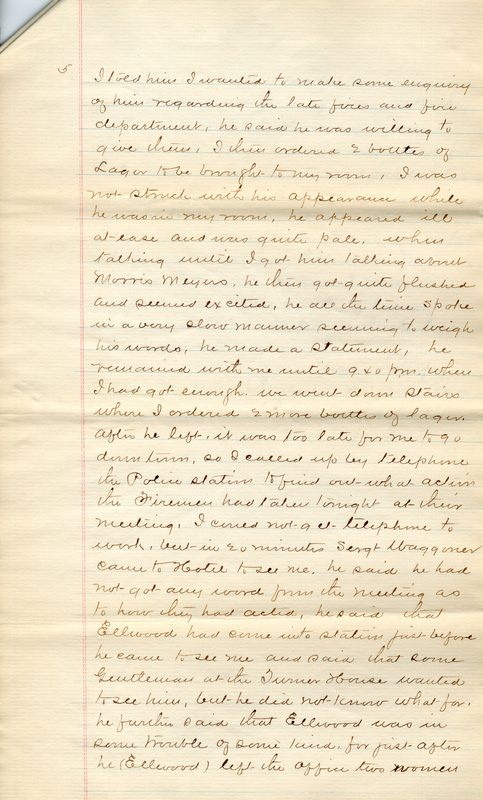 5
I told him I wanted to make some enquiry
of him regarding the late fires and fire
department, he said he was willing to
give them, I then ordered 2 bottles of
Lager to be brought to my room, I was
not struck with his appearance while
he was in my room, he appeared ill
at ease and was quite pale, when
talking until I got him talking about
Morris Meyers, he then got quite flushed
and seemed excited, he all the time spoke
in a very slow manner seeming to weigh
his words, he made a statement, he
remained with me until 9.40 pm. when
I had got enough. we went down stairs
where I ordered 2 more bottles of lager.
After he left, it was too late for me to go
down town, so I called up by telephone
the Police station to find out what action
the Firemen had taken tonight at their
meeting, I could not get telephone to
work, but in 20 minutes Sergt Waggoner
came to Hotel to see me, he said he had
not got any word from the meeting as
to how they had acted, he said that
Ellwood had come into station just before
he came to see me and said that some
Gentleman at the Turner House wanted
to see him, but he did not know what for.
he further said that Ellwood was in
some trouble of some kind, for just after
he (Ellwood) left the office two women